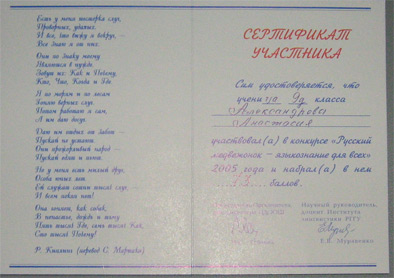 Есть у меня шестерка слуг,
Проворных, удалых.
И все, что вижу я вокруг, —
Все знаю я от них.
Они по знаку моему
Являются в нужде.
Зовут их: Как и Почему,
Кто, Что, Когда и Где.
Я по морям и по лесам
Гоняю верных слуг.
Потом работаю я сам,
А им даю досуг.
Даю им отдых от забот —
Пускай не устают.
Они прожорливый народ —
Пускай едят и пьют.
Но у меня есть милый друг,
Особа юных лет.
Ей служат сотни тысяч слуг,
И всем покоя нет!
Она гоняет, как собак,
В ненастье, дождь и тьму
Пять тысяч Где, семь тысяч Как,
Сто тысяч Почему!
Р. Киплинг (перевод С. Маршака)
СЕРТИФИКАТ
УЧАСТНИКА
Сим удостоверяется, что
учени ца 9д класса
Александрова
Анастасия
участвовал(а) в конкурсе «Русский
медвежонок – языкознание для всех»
2005 года и набрал(а) в нем
баллов.
Научный руководитель,
доцент Института
лингвистики РГГУ
Е.В. Муравенко